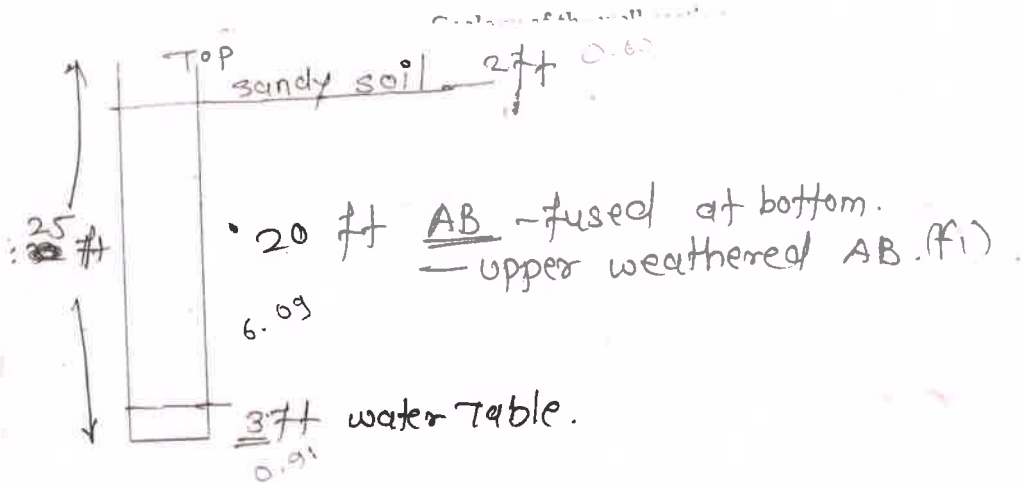 TOP
sandy soil 2ft
25 ft
20 ft AB - fused at bottom.
- upper weathered AB.
6.09
3ft water Table.
0.91